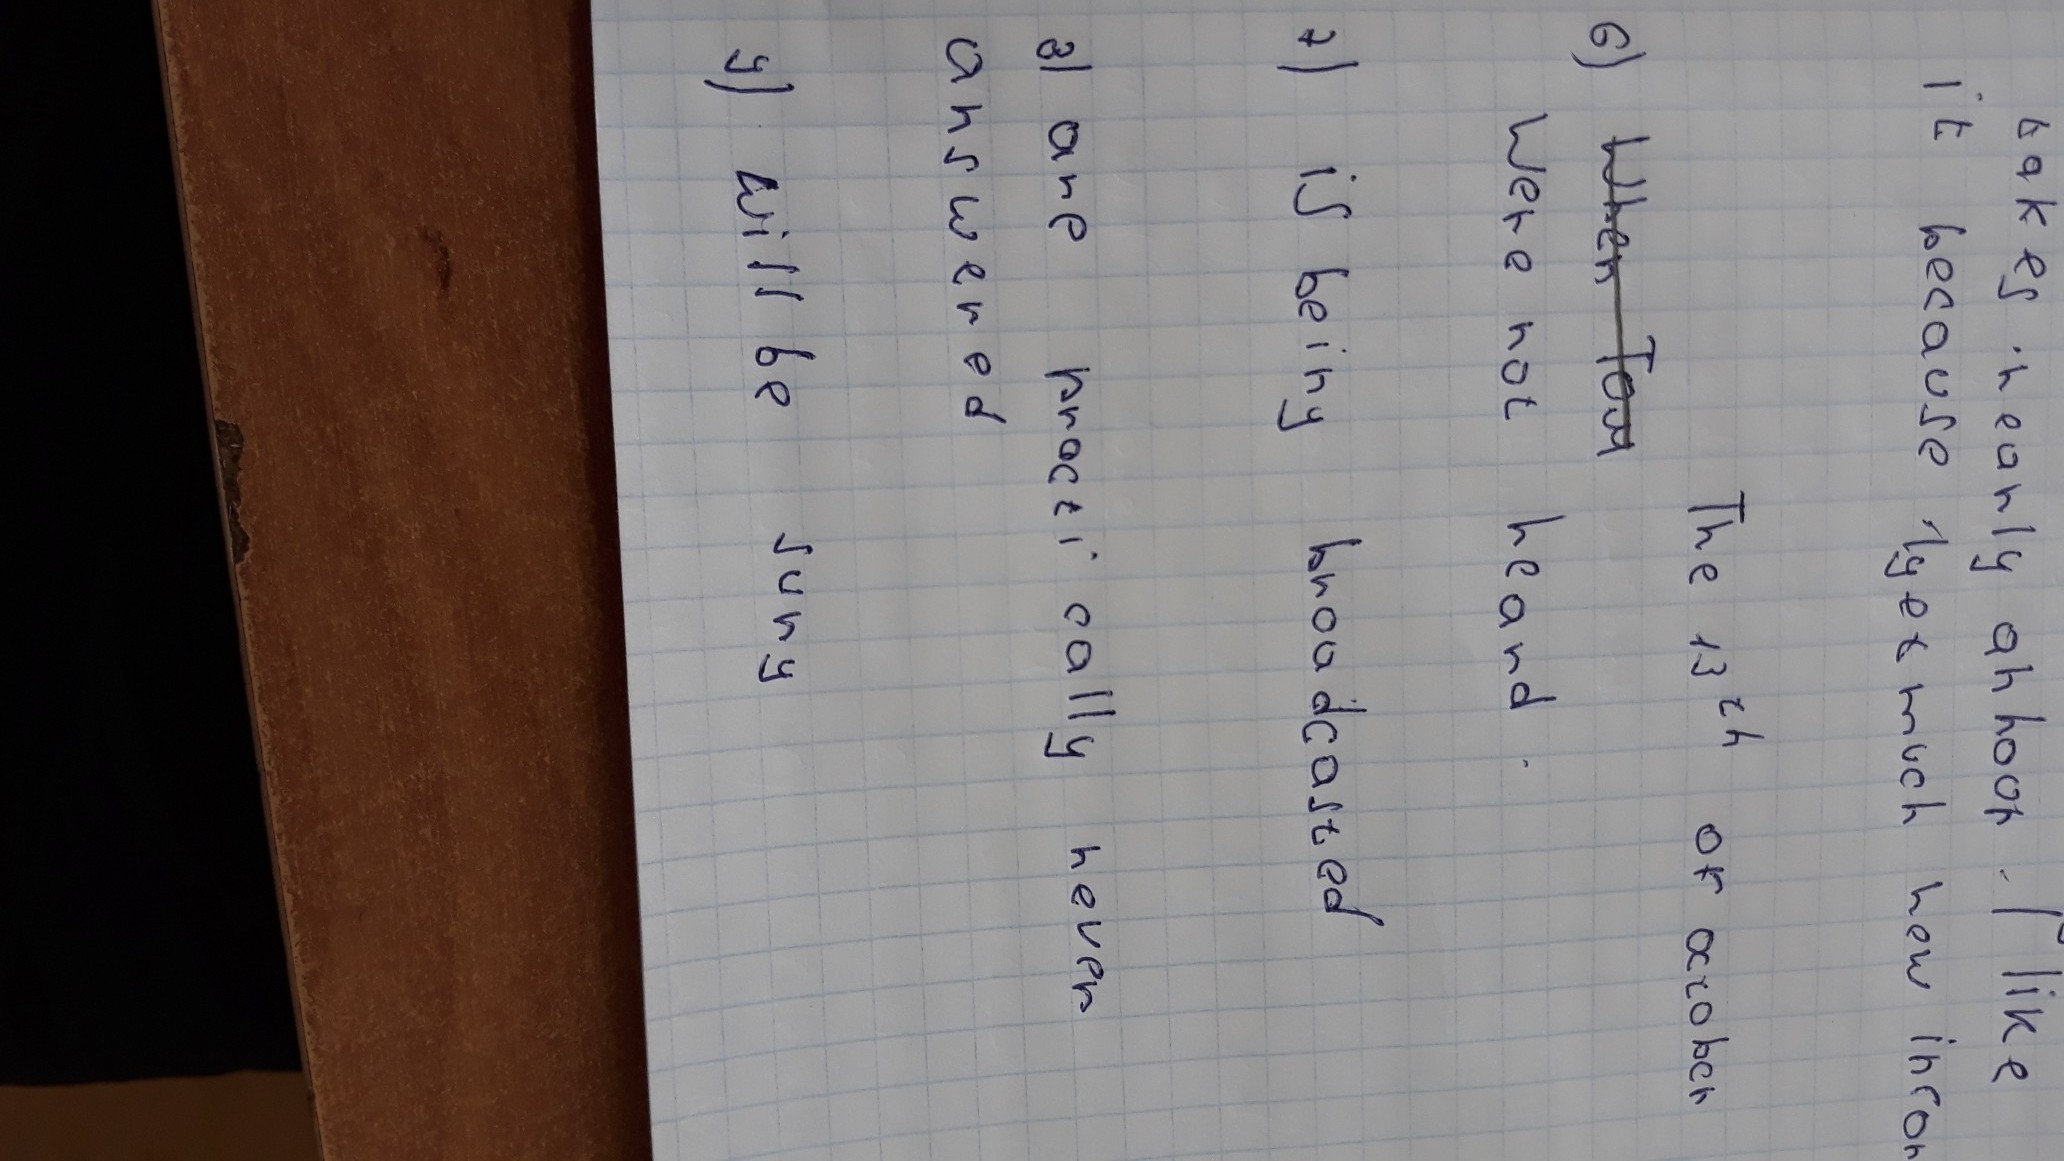 takes nearly an hour. I like
it because I get much new infor
The 13th of october
6) When Tom
were not heard.
2) is being broadcasted
3) are practically never
answered
4) will be sung